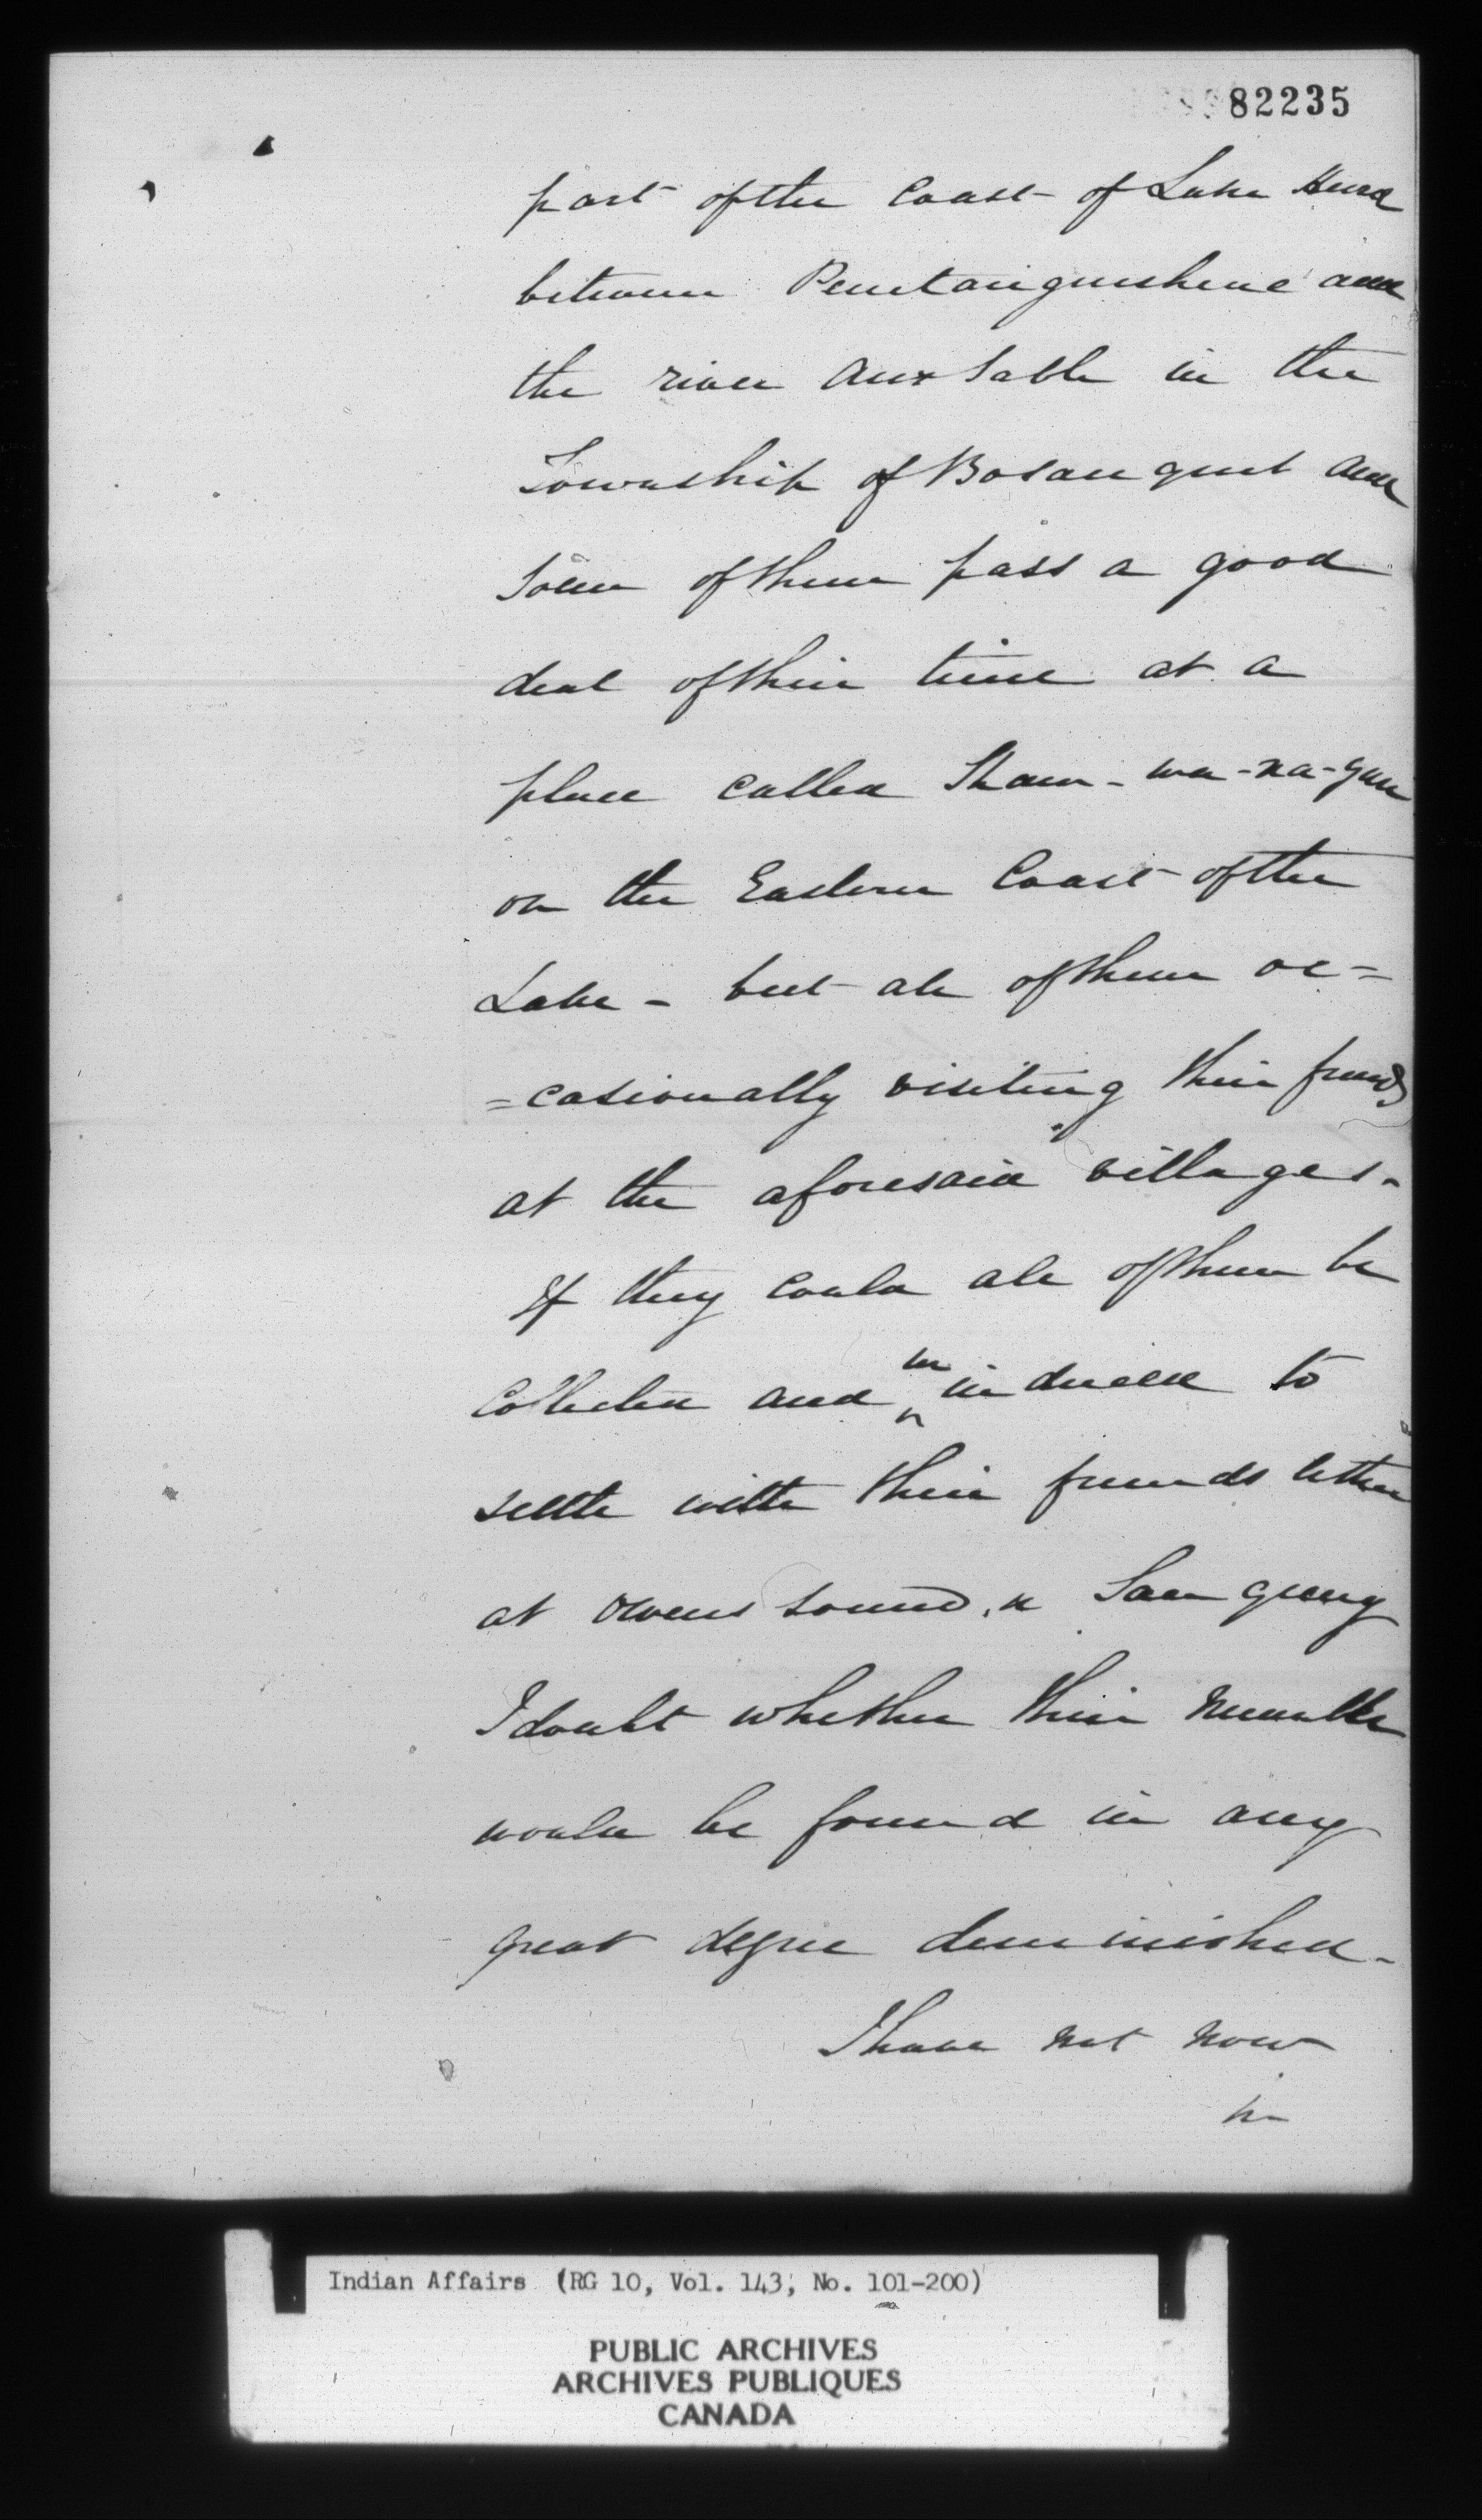 82235
part of the Coast of Lake Huron
between Penetanguishene and
the river Aux Sable in the
Township of Bosanquet and
some of them pass a good
deal of their time at a
place called Shaw-wa-na-gun
on the Eastern Coast of the
Lake - but all of them oc=
=casionally visiting their friends
at the aforesaid villages.
If they could all of them be
Collected and induced to
settle with their friends either
at Owens Sound, or Saugeeng
I doubt whether their number
would be found in any
great degree diminished -
I have not now
in
Indian Affairs (RG 10, Vol. 143, No. 101-200)
PUBLIC ARCHIVES
ARCHIVES PUBLIQUES
CANADA